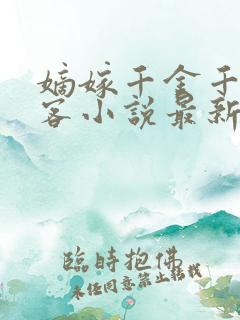 嫡嫁千金千
客小説最新
臨時抱佛
未经同意禁止转载